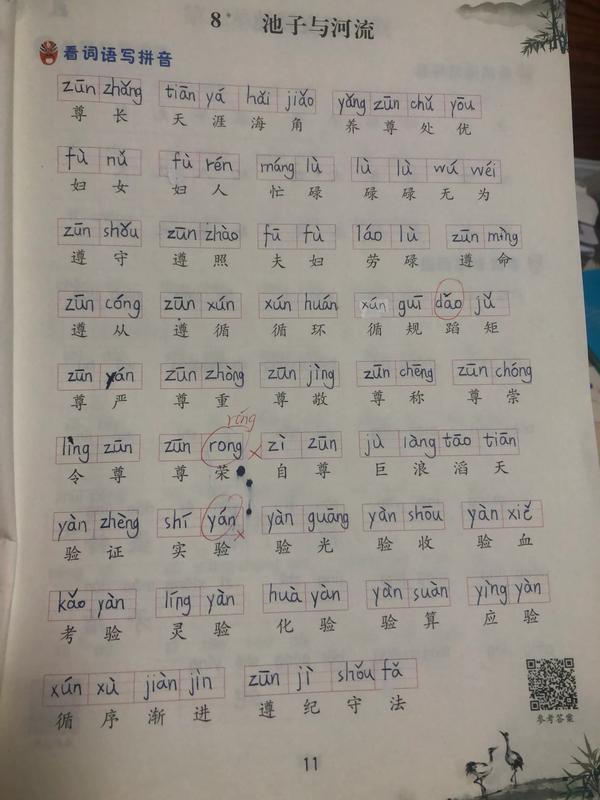 8 池子与河流
看词语写拼音
zūn zhǎng tiān yá hǎi jiǎo yǎng zūn chǔ yōu
尊 长 天 涯 海 角 养 尊 处 优
fù nǚ fù rén máng lù lù lù wú wéi
妇 女 妇 人 忙 碌 碌 碌 无 为
zūn shǒu zūn zhào fū fù láo lù zūn mìng
遵 守 遵 照 夫 妇 劳 碌 遵 命
zūn cóng zūn xún xún huán xún guī dǎo jǔ
遵 从 遵 循 循 环 循 规 蹈 矩
zūn yán zūn zhòng zūn jìng zūn chēng zūn chóng
尊 严 尊 重 尊 敬 尊 称 尊 崇
róng
lìng zūn zūn rong zì zūn jù làng tāo tiān
令 尊 尊 荣 自 尊 巨 浪 滔 天
yàn zhèng shí yán yàn guāng yàn shōu yàn xiě
验 证 实 验 验 光 验 收 验 血
kǎo yàn líng yàn huà yàn yàn suàn yìng yàn
考 验 灵 验 化 验 验 算 应 验
xún xù jiàn jìn zūn jì shǒu fǎ
循 序 渐 进 遵 纪 守 法
参考答案
11